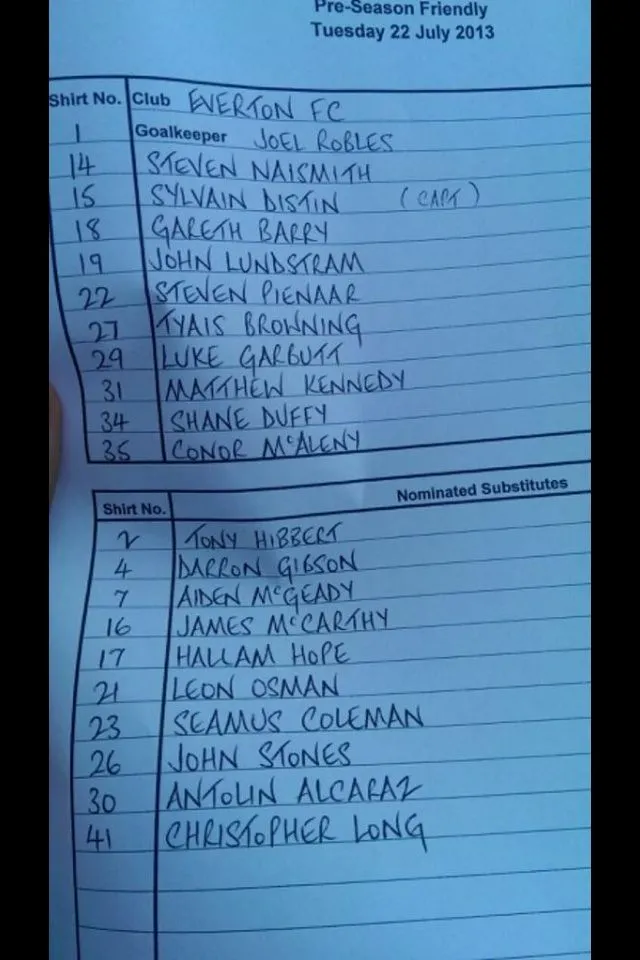 Pre-Season Friendly
Tuesday 22 July 2013
Shirt No. Club EVERTON FC
1 Goalkeeper JOEL ROBLES
14 STEVEN NAISMITH
15 SYLVAIN DISTIN (CAPT)
18 GARETH BARRY
19 JOHN LUNDSTRAM
22 STEVEN PIENAAR
27 TYAIS BROWNING
29 LUKE GARBUTT
31 MATTHEW KENNEDY
34 SHANE DUFFY
35 CONOR McALENY
Shirt No. Nominated Substitutes
2 TONY HIBBERT
4 DARRON GIBSON
7 AIDEN McGEADY
16 JAMES McCARTHY
17 HALLAM HOPE
21 LEON OSMAN
23 SEAMUS COLEMAN
26 JOHN STONES
30 ANTOLIN ALCARAZ
41 CHRISTOPHER LONG